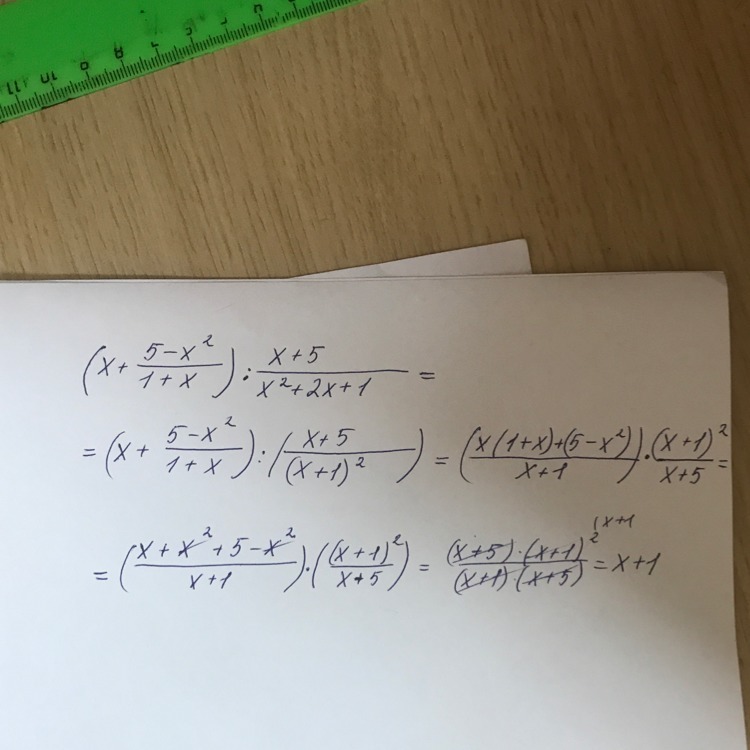 11 10 9 8 7
(x + (5-x²)/(1+x)) : (x+5)/(x²+2x+1) =
= (x + (5-x²)/(1+x)) : ((x+5)/(x+1)²) = ((x(1+x)+(5-x²))/(x+1)) · (x+1)²/(x+5) =
= ((x+x²+5-x²)/(x+1)) · ((x+1)²/(x+5)) = ((x+5)·(x+1)²)/((x+1)·(x+5)) = x+1
(x+1